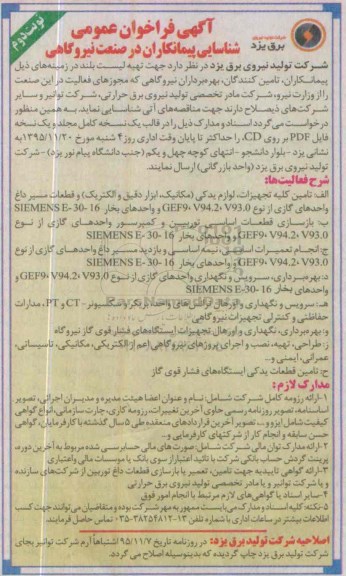 نوبت دوم
برق یزد
آگهی فراخوان عمومی
شناسایی پیمانکاران در صنعت نیروگاهی
شرکت تولید نیروی برق یزد در نظر دارد جهت تهیه لیست بلند در زمینه‌های ذیل
پیمانکاران، تامین کنندگان، بهره‌برداران نیروگاهی که مجوزهای فعالیت در این صنعت
را از وزارت نیرو، شرکت مادر تخصصی تولید نیروی برق حرارتی، شرکت توانیر و سایر
شرکت‌های ذیصلاح دارند جهت مناقصه‌های آتی شناسایی نماید. به همین منظور
درخواست می‌گردد اسناد و مدارک ذیل را در قالب یک نسخه کامل مجلد و یک نسخه
فایل PDF بر روی CD، را حداکثر تا پایان وقت اداری روز ۴ شنبه مورخ ۱۳۹۵/۱۱/۲۰ به
نشانی یزد - بلوار دانشجو - انتهای کوچه چهل و یکم (جنب دانشگاه پیام نور یزد) - شرکت
تولید نیروی برق یزد (واحد بازرگانی) ارسال نمایند.
شرح فعالیت‌ها:
الف: تامین کلیه تجهیزات، لوازم یدکی (مکانیک، ابزار دقیق و الکتریک) و قطعات مسیر داغ
واحدهای گازی از نوع GEF9، V94.2، V93.0 و واحدهای بخار SIEMENS E-30-16
ب: بازسازی قطعات اساسی توربین و کمپرسور واحدهای گازی از نوع
GEF9، V94.2، V93.0 و واحدهای بخار SIEMENS E-30-16
ج: انجام تعمیرات اساسی، نیمه اساسی و بازدید مسیر داغ واحدهای گازی از نوع
GEF9، V94.2، V93.0 و واحدهای بخار SIEMENS E-30-16
د: بهره‌برداری، سرویس و نگهداری واحدهای گازی از نوع GEF9، V94.2، V93.0 و
واحدهای بخار SIEMENS E-30-16
هـ: سرویس و نگهداری و اورهال ترانس‌های واحد، دیگر ترانسفورمر - CT و PT، مدارات
حفاظتی و کنترلی تجهیزات نیروگاهی
و: بهره‌برداری، نگهداری و اورهال تجهیزات ایستگاه‌های فشار قوی گاز نیروگاه
ز: طراحی، تهیه، نصب و اجرای پروژه‌های نیروگاهی (اعم از الکتریکی، مکانیکی، تاسیساتی،
عمرانی، ایمنی و...
ح: تامین قطعات یدکی ایستگاه‌های فشار قوی گاز
مدارک لازم:
۱- ارائه رزومه کامل شرکت شامل: نام و عنوان اعضا هیئت مدیره و مدیران اجرائی، تصویر
اساسنامه، تصویر روزنامه رسمی حاوی آخرین تغییرات، رزومه کاری، چارت سازمانی، انواع گواهی
کیفیت شامل ایزو و...، تصویر آخرین قراردادهای منعقده طی ۵ سال گذشته با کارفرمایان، گواهی
حسن سابقه و انجام کار از شرکتهای کارفرمایی و...
۲- ارائه مدارک توان مالی شرکت شامل: صورت های مالی حسابرسی شده مربوط به آخرین دوره،
پرینت گردش حساب بانکی شرکت با تائید اعتبار از سوی بانک یا موسسات مالی و اعتباری
۳- ارائه گواهی تاییدیه جهت تامین، تعمیر یا بازسازی قطعات داغ توربین از شرکت‌های سازنده
و یا شرکت توانیر و یا مادر تخصصی تولید نیروی برق حرارتی
۴- سایر اسناد یا گواهی‌های لازم مرتبط با انجام امور فوق
۵- نکته: کلیه اسناد و مدارک می‌بایست ممهور به مهر شرکت بوده و متقاضیان می‌توانند جهت کسب
اطلاعات بیشتر در ساعات اداری با شماره تلفن ۱۳-۳۸۲۵۴۸۱۲-۰۳۵ تماس حاصل فرمایند.
اصلاحیه شرکت تولید برق یزد: در روزنامه تاریخ ۹۵/۱۱/۷ اشتباهاً آرم شرکت توانیر بجای
شرکت تولید برق یزد چاپ گردیده که بدینوسیله اصلاح می‌گردد.